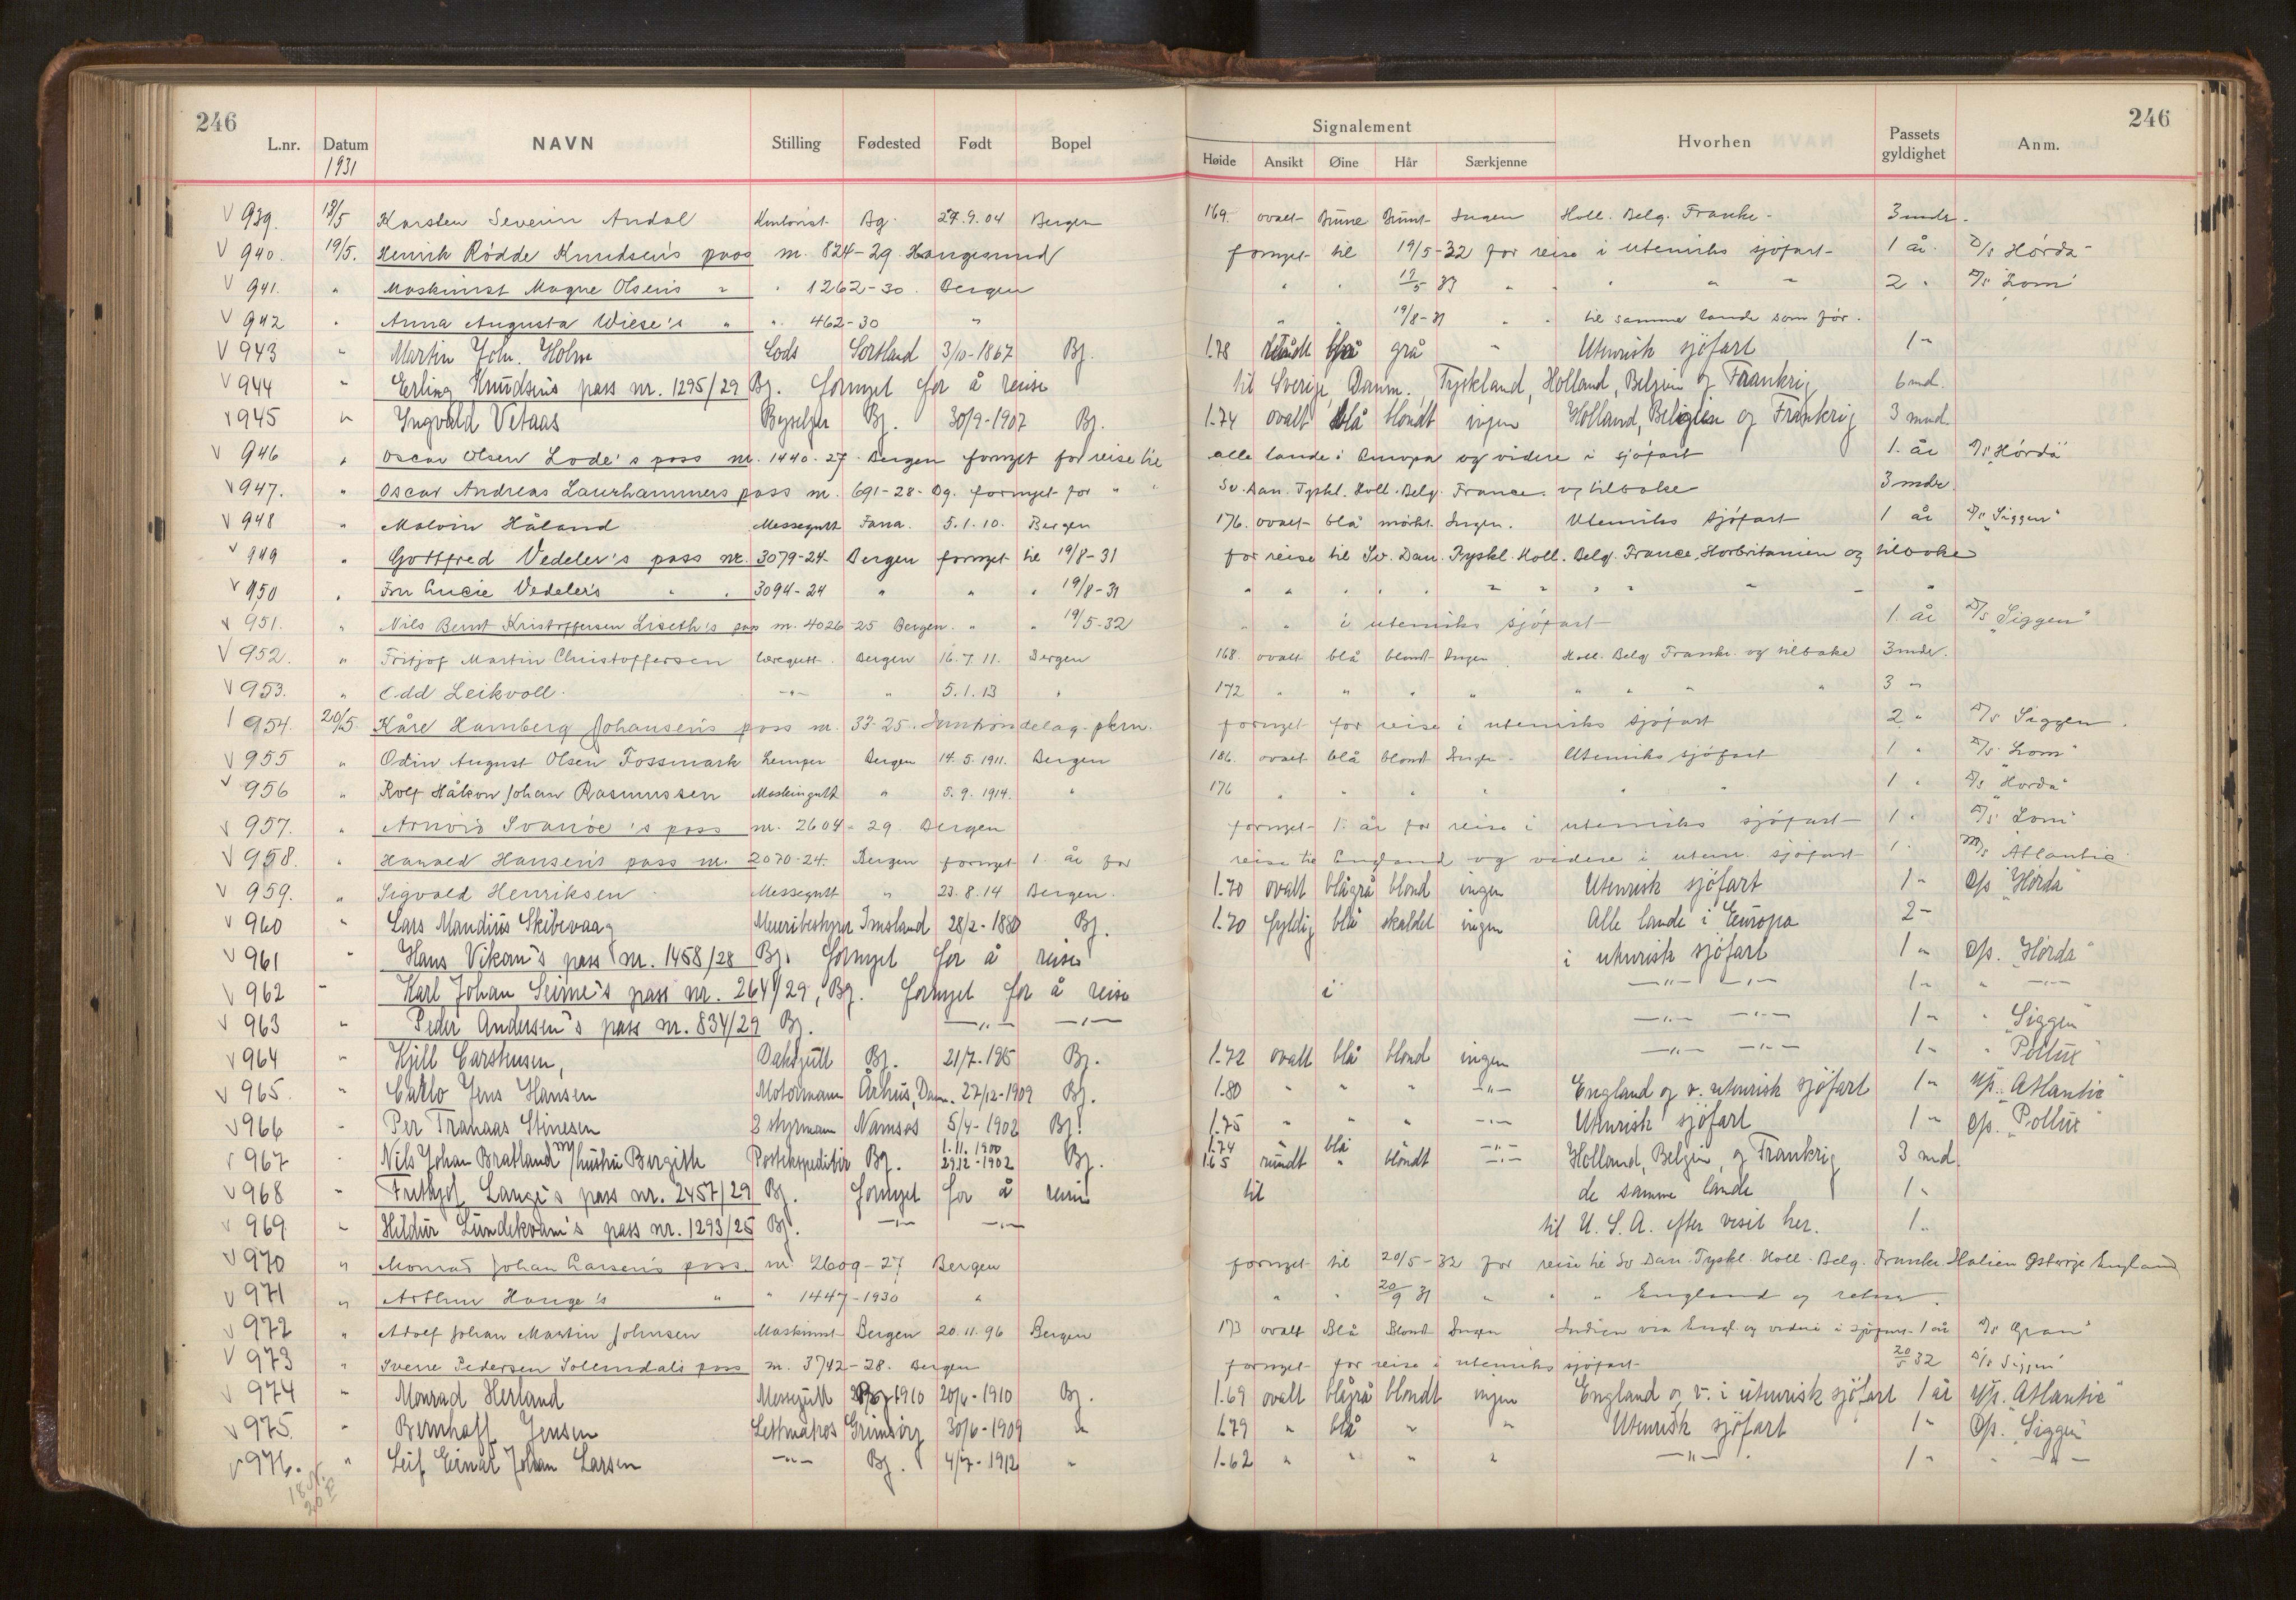 246 246
Signalement
L.nr. Datum NAVN Stilling Fødested Født Bopel Høide Ansikt Øine Hår Særkjenne Hvorhen Passets gyldighet Anm.
1931
V 939. 18/5 Karsten Severin Andal Kontorist Bg. 27.9.04 Bergen 169. ovalt Brune Brunt Ingen Holl. Belg. Frankr. 3 mdr.
V 940. 19/5. Henrik Rödde Knudsen's pass nr. 824-29 Haugesund fornyet til 19/5-32 for reise i utenriks sjöfart 1 år. D/s Hórda
V 941. " Maskinist Magne Olsen's " " 1262-30. Bergen " " 19/5 33 " " " " " 2 " D/s "Lom"
V 942 " Anna Augusta Wiese's " " 462-30 " " " 19/8-31 " " til samme lande som för.
V 943 " Martin Joh. Holm Lods Sortland 3/10-1867 Bg. 1.78 blå grå " Utenrisk sjöfart 1 "
V 944 " Erling Knudsens pass nr. 1295/29 Bg. fornyet for å reise til Sverige, Danm. Tyskland, Holland, Belgien og Frankrig 6 md.
V 945 " Ingvald Vetaas Bg. 30/9-1907 Bg. 1.74 ovalt blå blondt ingen Holland, Belgien og Frankrig 3 mnd.
V 946 " Oscar Olsen Lode's pass nr. 1440-27. Bergen fornyet for reise til alle lande i Europa og videre i sjöfart 1. år D/s "Hórda"
V 947. " Oscar Andreas Laurhammers pass nr. 691-28- Bg. fornyet for " " Sv. Dan. Tyskl. Holl. Belg. France. og tilbake 3 mdr.
V 948 " Malvin Håland Messegutt Fana. 5.1.10. Bergen 176. ovalt blå mörkt. Ingen. Utenriks sjöfart 1 år D/s "Siggen"
V 949 " Gottfred Vedeler's pass nr. 3079-24- Bergen fornyet til 19/8-31 for reise til Sv. Dan. Tyskl. Holl. Belg. France, Storbritanien og tilbake
V 950 " Fru Lucie Vedeler's " " 3094-24 " " " 19/8-31 " " " " " " " " " " " "
V 951. " Nils Bernt Kristoffersen Liseth's pass nr. 4026-25 Bergen. " " 19/5-32 " " i utenriks sjöfart 1. år D/s "Siggen"
V 952. " Fritjof Martin Christoffersen læregutt. Bergen 16.7.11. Bergen 168. ovalt blå blond Ingen. Holl. Belg Frankr. og tilbake 3 mdr.
V 953. " Odd Leikvoll. -"- " 5.1.13 " 172 " " " " " " " " 3 "
954. 20/5. Kåre Hamberg Johansen's pass nr. 33-25. fornyet for reise i utenriks sjöfart 2 " D/s Siggen.
V 955 " Odin August Olsen Fossmark Lemper Bergen 14.5.1911. Bergen 186. ovalt blå blond Ingen - Utenriks sjöfart 1 " D/s "Lom"
V 956 " Rolf Håkon Johan Rasmussen Maskingutt " 5.9.1914. " 176 " " " " " " 1 " D/s "Horda"
V 957. " Arnvid Svanöe's pass nr. 2604-29. Bergen fornyet 1. år for reise i utenriks sjöfart 1 " D/s Lom"
V 958. " Harald Hansen's pass nr. 2070-24. Bergen fornyet 1. år for reise til England og videre i utenr. sjöfart 1. M/s Atlantic
V 959. " Sigvald Henriksen Messegutt " 23.8.14 Bergen. 1.70 ovalt blågrå blond ingen Utenrisk sjöfart 1 " D/s "Hórda"
V 960 " Lars Mandius Skibevaag Meieribestyrer Imsland 28/2-1880 Bg. 1.70 fyldig blå skaldet ingen Alle lande i Europa 2 -
V 961 " Hans Vikan's pass nr. 1458/28 Bg. fornyet for å reise i utenrisk sjöfart 1 " D/s. "Hórda"
V 962 " Karl Johan Seime's pass nr. 2641/29, Bg. fornyet for å reise i -"- -"- 1 " " -"-
V 963 " Peder Andersen's pass nr. 834/29 Bg. -"- -"- -"- -"- 1 " " "Siggen"
V 964 " Kjell Carstensen, Daksgutt Bg. 21/7-1915 Bg. 1.72 ovalt blå blond ingen -"- -"- 1 " " "Pollux"
V 965. " Carlo Jens Hansen Motormann Århus, Dan. 27/12-1909 Bg. 1.80 " " " -"- England og v. utenrisk sjöfart 1 " M/s. "Atlantic"
V 966 " Per Tranaas Stinesen 2 styrmann Namsos 5/4-1902 Bg! 1.75 " " " -"- Utenrisk sjöfart 1 " D/s. "Pollux"
967 " Nils Johan Bratland m/hustru Bergith Postekspeditör Bg. 1.11.1900 27.12-1902 Bg. 1.74 1.65 rundt blå " blondt -"- -"- Holland, Belgien, og Frankrig 3 md.
V 968 " Frithjof Lange's pass nr. 2457/29 Bg. fornyet for å reise til de samme lande 1 "
V 969 " Hildur Lundekvam's pass nr. 1293/25 Bg. -"- -"- til U.S.A. efter visit her. 1 "
V 970 " Monrad Johan Larsen's pass nr. 2609-27 Bergen fornyet til 20/5-32 for reise til Sv Dan. Tyskl. Holl. Belg. Frankr. Italien Östrige England
V 971 " Arthur Hauge's " " 1447-1930 " " " 20/9 31 " " " England og retur.
V 972 " Adolf Johan Martin Johnsen Maskinist Bergen 20.11.96 Bergen 173 ovalt Blå Blond Ingen Indien via Engl. og videre i sjöfart 1 år D/s Gran"
V 973 " Sverre Pedersen Solemdals pass nr. 3742-28. Bergen fornyet for reise i utenriks sjöfart 20/5 32 D/s Siggen"
V 974 " Monrad Herland Messegutt 20/6-1910 Bg. 1.69 ovalt blågrå blondt ingen England og v. i utenrisk sjöfart 1 år M/s. "Atlantic"
V 975. " Bernhoff Jensen Lettmatros 30/6-1909 " 1.79 " blå " " Utenrisk sjöfart 1 " D/s. "Siggen"
V 976. " Leif Einar Johan Larsen -"- Bg. 4/7-1912 " 1.62 " " " " -"- 1 " " -"-
18 N.
20 F